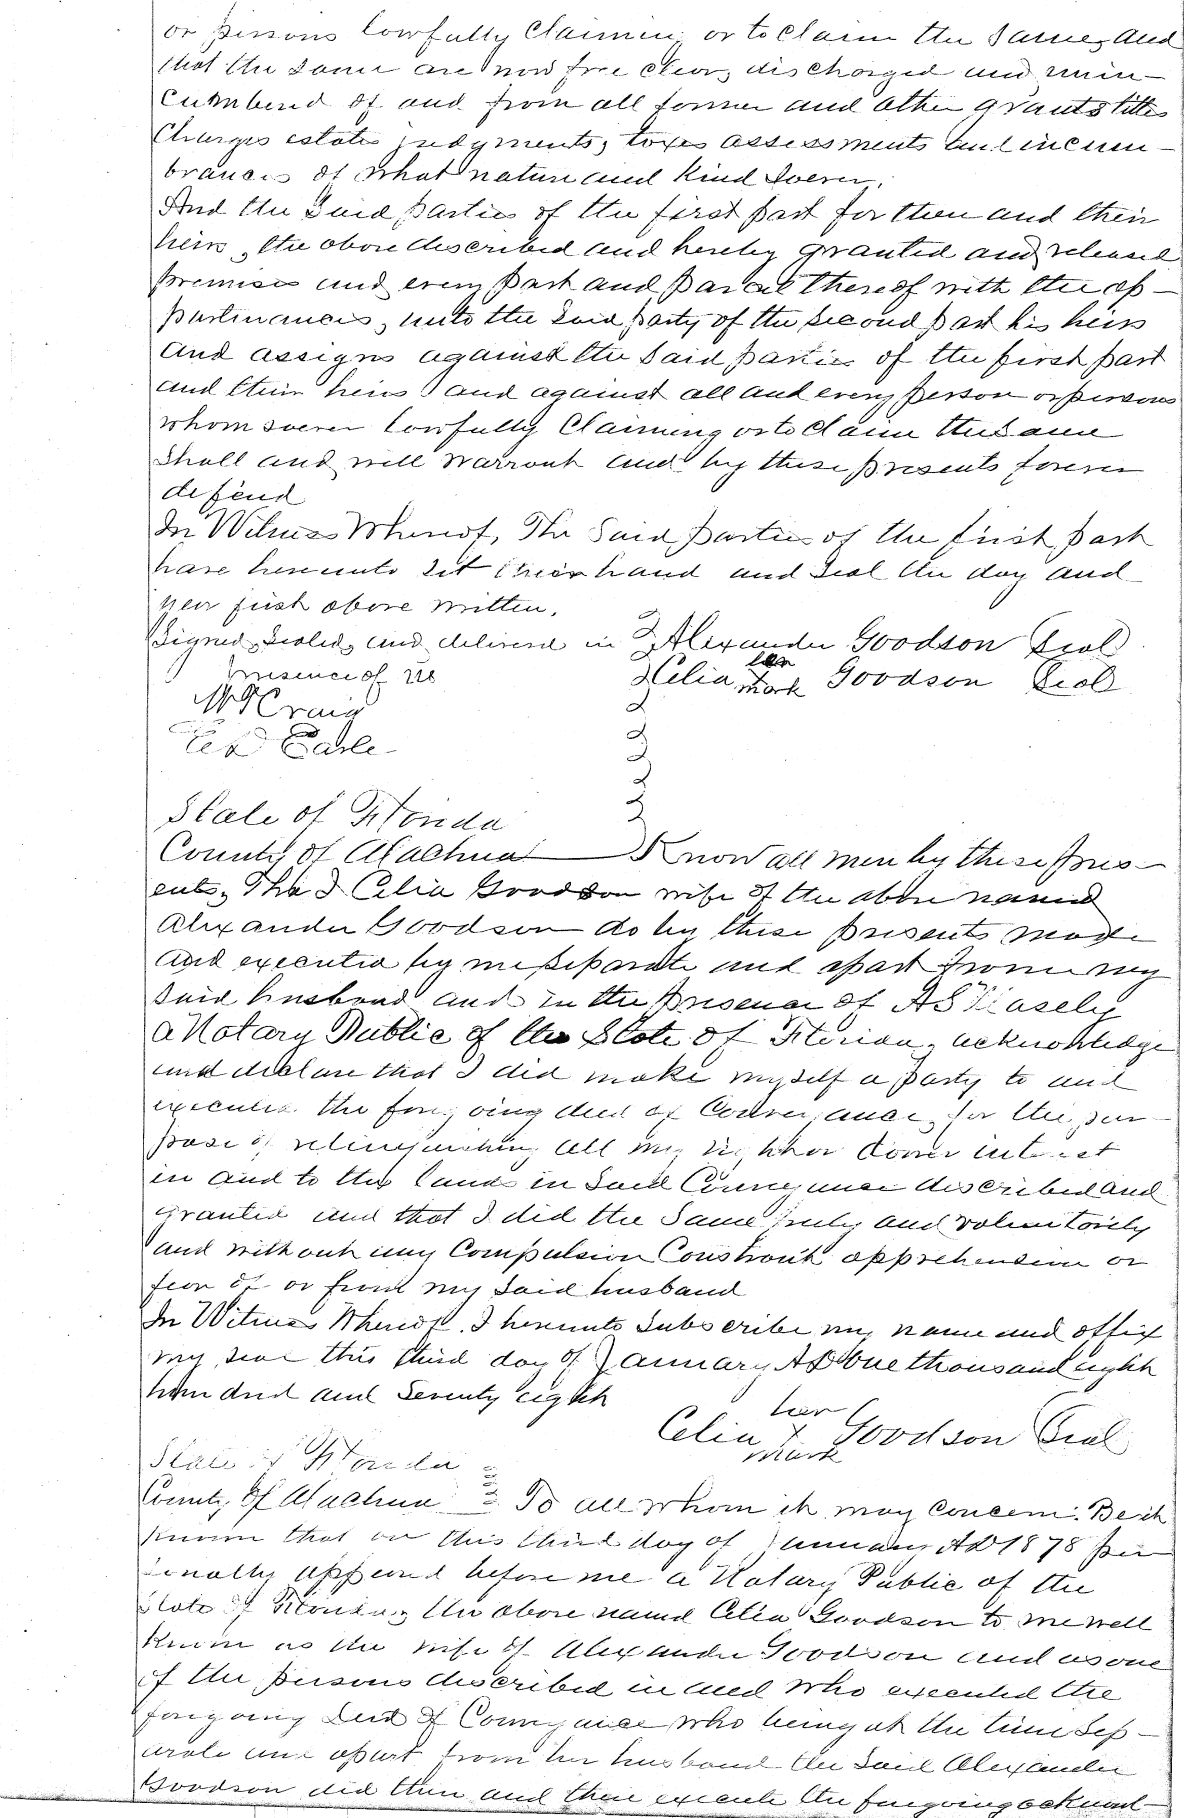 or persons lawfully Claiming or to Claim the Same, And
that the Same are now free clear, discharged and unin-
cumbered of and from all former and other grants titles
Charges estates judgments, taxes assessments and incum-
brances of what nature and Kind Soever,
And the Said parties of the first part for them and their
heirs, the above described and hereby granted and released
premises and every part and parcel thereof with the ap-
purtinances, unto the Said party of the Second part his heirs
and assigns against the Said parties of the first part
and their heirs and against all and every person or persons
whom soever lawfully Claiming or to Claim the Same
Shall and will Warrant and by these presents forever
defend
In Witness Whereof, The Said parties of the first part
have hereunto Set their hand and Seal the day and
year first above written.
Signed, Sealed, and delivered in Alexander Goodson Seal
presence of us Celia her mark Goodson Seal
Craig
Earle
State of Florida
County of Alachua Know all men by these pres-
ents, Tha I Celia Goodson wife of the above named
Alexander Goodson do by these presents made
and executed by me Separate and apart from my
Said husband and in the presence of A S
a Notary Public of the State of Florida, acknowledge
and declare that I did make myself a party to and
executed the foregoing deed of Conveyance, for the pur-
pose of relinquishing all my right or dower interest
in and to the lands in Said Conveyance described and
granted and that I did the Same freely and voluntarily
and without any Compulsion Constraint apprehension or
fear of or from my Said husband
In Witness Whereof, I hereunto Subscribe my name and affix
my seal this third day of January AD one thousand eight
hundred and Seventy eight
Celia her X mark Goodson Seal
State of Florida
County of Alachua To all whom it may Concern: Be it
known that on this third day of January AD 1878 per
sonally appeared before me a Notary Public of the
State of Florida, the above named Celia Goodson to me well
known as the wife of Alexander Goodson and as one
of the persons described in and who executed the
foregoing Deed of Conveyance who being at the time Sep-
arate and apart from her husband the Said Alexander
Goodson did then and there execute the foregoing acknowl-